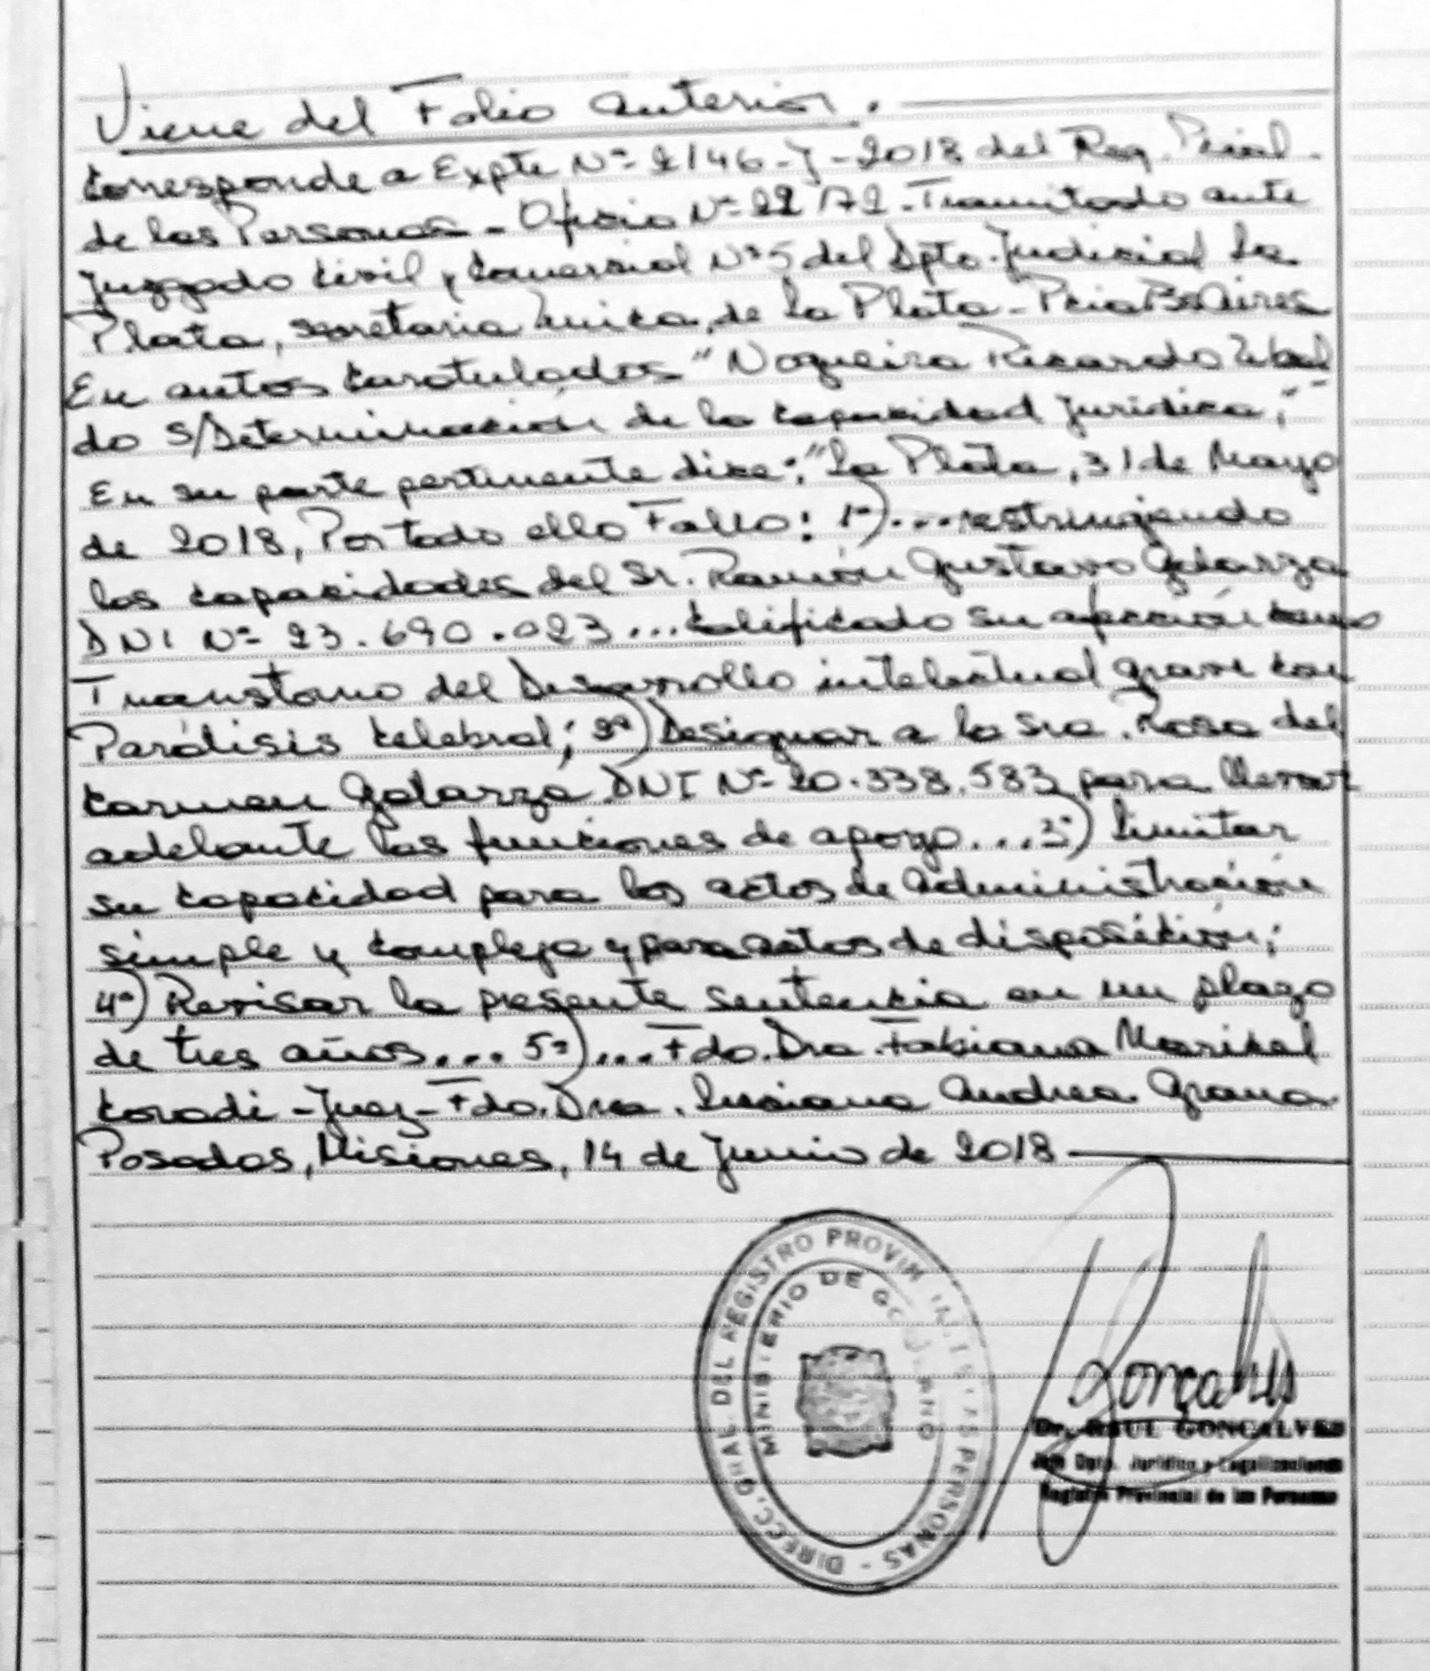 Viene del Folio anterior.
Corresponde a Expte Nº 2146-J-2018 del Reg. Pcial.
de las Personas - Oficio Nº 22172 - Tramitado ante
Juzgado Civil y Comercial Nº 5 del Dpto. Judicial La
Plata, secretaria Unica, de La Plata - Pcia Bs Aires
En autos Caratulados "Nogueira Ricardo
do S/Determinación de la capacidad Jurídica,"
En su parte pertinente dice: "La Plata, 31 de Mayo
de 2018, Por todo ello Fallo: 1º)... restringiendo
las capacidades del Sr. Ramón Gustavo Galarza
DNI Nº 23.690.023 ... Calificado su afección como
Transtorno del Desarrollo intelectual grave con
Parálisis Celebral; 2º) Designar a la Sra. Rosa del
Carmen Galarza DNI Nº 20.338.583 para llevar
adelante las funciones de apoyo... 3º) Limitar
su capacidad para los actos de administración
simple y compleja y para actos de disposición;
4º) Revisar la presente sentencia en un plazo
de tres años... 5º)... Fdo. Dra. Fabiana Marisel
Coradi - Juez - Fdo. Dra. Luciana Andrea Grana.
Posadas, Misiones, 14 de Junio de 2018
DIREC. GRAL. DEL REGISTRO PROVIN. DE LAS PERSONAS -
MINISTERIO DE GOBIERNO
Gonçalves
Dr. RAUL GONCALVES
Jefe Dpto. Jurídico y Legalizaciones
Registro Provincial de las Personas